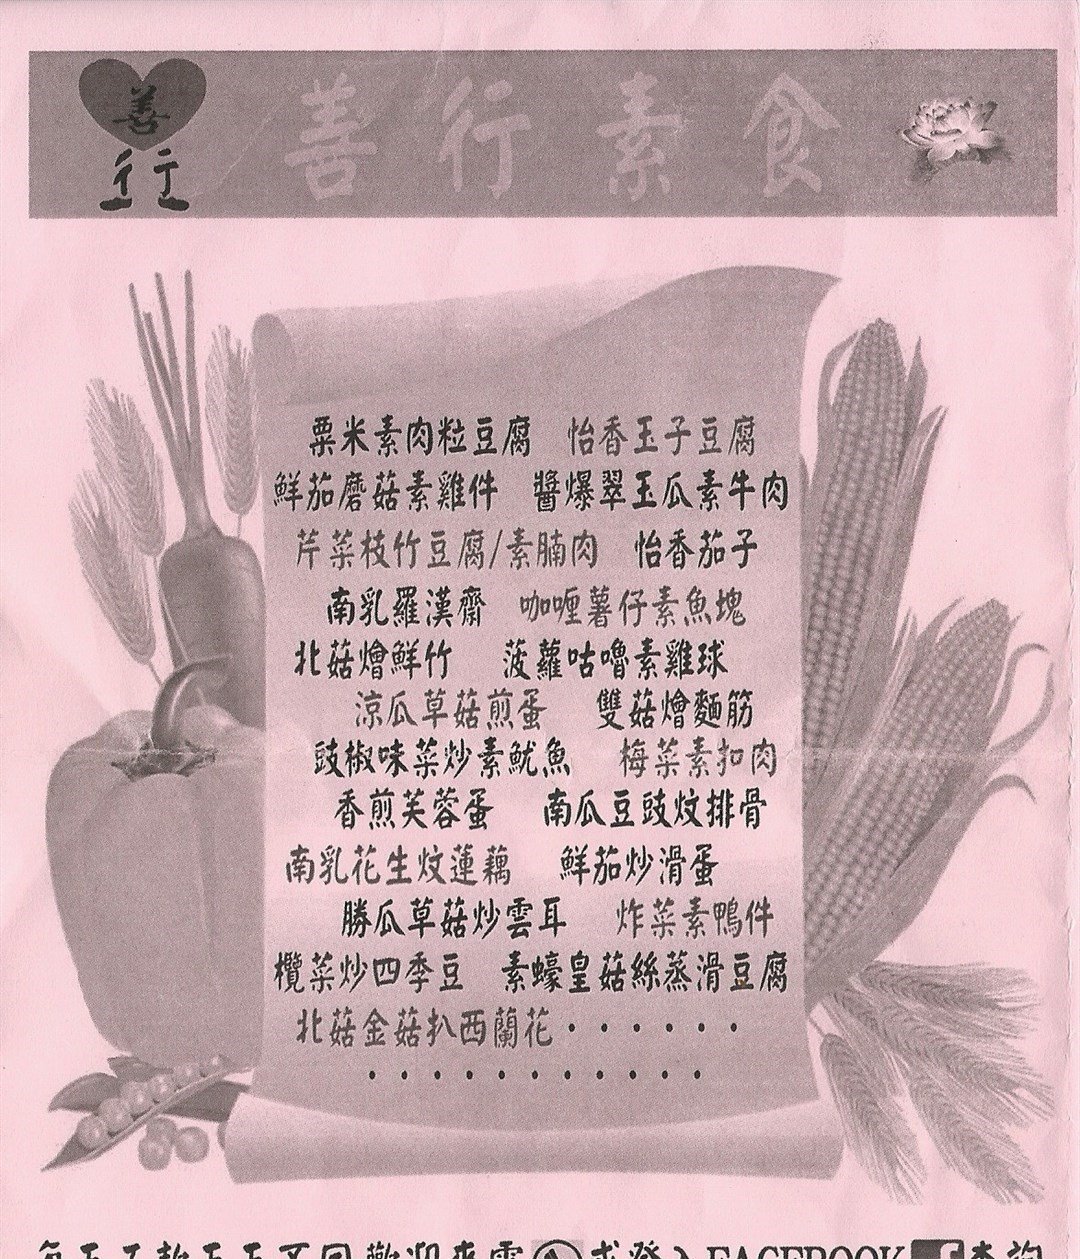 善行
善行素食
粟米素肉粒豆腐 怡香玉子豆腐
鮮茄磨菇素雞件 醬爆翠玉瓜素牛肉
芹菜枝竹豆腐/素腩肉 怡香茄子
南乳羅漢齋 咖喱薯仔素魚塊
北菇燴鮮竹 菠蘿咕嚕素雞球
涼瓜草菇煎蛋 雙菇燴麵筋
豉椒味菜炒素魷魚 梅菜素扣肉
香煎芙蓉蛋 南瓜豆豉炆排骨
南乳花生炆蓮藕 鮮茄炒滑蛋
勝瓜草菇炒雲耳 炸菜素鴨件
欖菜炒四季豆 素蠔皇菇絲蒸滑豆腐
北菇金菇扒西蘭花‧‧‧‧‧‧
‧‧‧‧‧‧‧‧‧‧‧
FACEBOOK